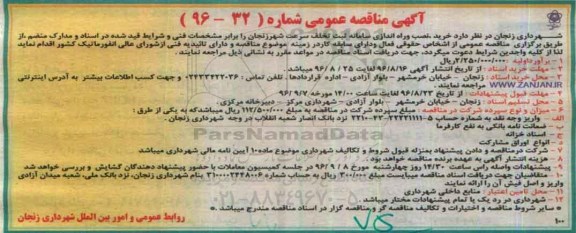 آگهی مناقصه عمومی شماره ( ۳۲ - ۹۶ )
شهرداری زنجان در نظر دارد خرید ،نصب وراه اندازی سامانه ثبت تخلف سرعت شهرزنجان را برابر مشخصات فنی و شرایط قید شده در اسناد و مدارک منضم ،از
طریق برگزاری مناقصه عمومی از اشخاص حقوقی فعال ودارای سابقه کاردر زمینه موضوع مناقصه و دارای تائیدیه فنی ازشورای عالی انفورماتیک کشور اقدام نماید
لذا از کلیه واجدین شرایط دعوت میگردد، جهت دریافت اسناد مناقصه در مواعد مقرر به نشانی ذیل مراجعه نمایند .
۱- برآورداولیه : ۲/۲۵۰/۰۰۰/۰۰۰ ریال
۲- مهلت خرید اسناد : از تاریخ انتشار آگهی ۹۶/۸/۱۶ لغایت ۹۶/۸/۲۵ میباشد .
۳- محل خرید اسناد : زنجان - خیابان خرمشهر - بلوار آزادی - اداره قراردادها . تلفن تماس : ۰۲۴۳۳۴۲۲۰۲۶ و جهت کسب اطلاعات بیشتر به آدرس اینترنتی
ZANJAN.IR مراجعه نمایند .
۴- مهلت قبول پیشنهادات : از تاریخ ۹۶/۸/۲۳ لغایت ساعت ۱۴:۰۰ مورخ ۹۶/۹/۷
۵- محل تسلیم اسناد : زنجان - خیابان خرمشهر - بلوار آزادی - شهرداری مرکز - دبیرخانه مرکزی .
۶- میزان و نوع سپرده شرکت در مناقصه : مبلغ سپرده شرکت در مناقصه به مبلغ ۱۱۲/۵۰۰/۰۰۰ ریال میباشدکه به یکی از طرق :
الف - واریز وجه نقد به شماره حساب ۵-۲۲۲۲۱۱۱-۲۲-۲۲۱۰ نزد بانک انصار شعبه انقلاب در وجه شهرداری زنجان
ب - ضمانت نامه بانکی به نفع کارفرما
ج - اسناد خزانه
د - انواع اوراق مشارکت
۷- شرکت درمناقصه و دادن پیشنهاد بمنزله قبول شروط و تکالیف شهرداری موضوع ماده۱۰ آیین نامه مالی شهرداری میباشد
۸- هزینه انتشار آگهی به عهده برنده خواهد بود .
۹- پیشنهادات واصله راس ساعت ۱۴/۳۰ روز چهارشنبه مورخ ۹۶/۹/۸ در جلسه کمیسیون معاملات با حضور پیشنهاد دهندگان گشایش و بررسی خواهد شد
۱۰- متقاضیان جهت دریافت اسناد مناقصه میبایست مبلغ ۳۰۰/۰۰۰ ریال به حساب شماره بنام شهرداری زنجان، نزد بانک ملی، شعبه میدان آزادی
واریز و اصل فیش آن را ارائه نمایند
۱۱- محل تامین اعتبار : منابع داخلی شهرداری
۱۲- شهرداری در رد یک یا تمام پیشنهادات مختار میباشد
* سایر شروط مناقصه و اختیارات و تکالیف مناقصه گر و مناقصه گزار در اسناد مناقصه مندرج میباشد
روابط عمومی و امور بین الملل شهرداری زنجان
ParsNamadData